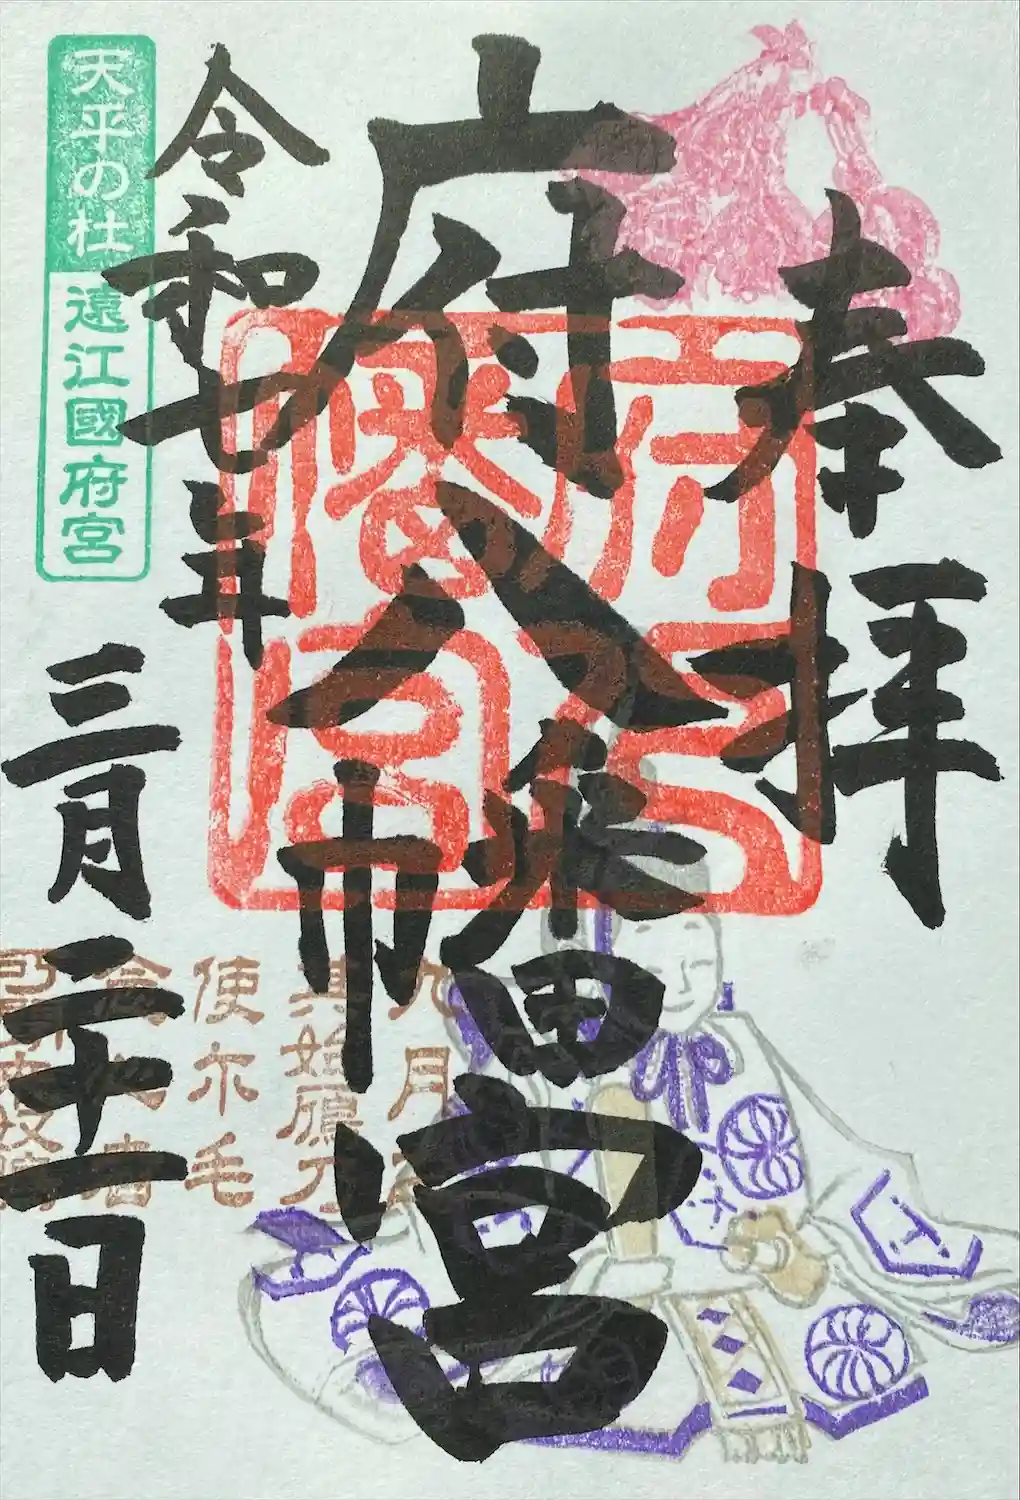 奉拝
府八幡宮
令和七年
三月二十一日
天平の杜
遠江國府宮
府八
幡宮
九月
其始雁乃
使尓毛